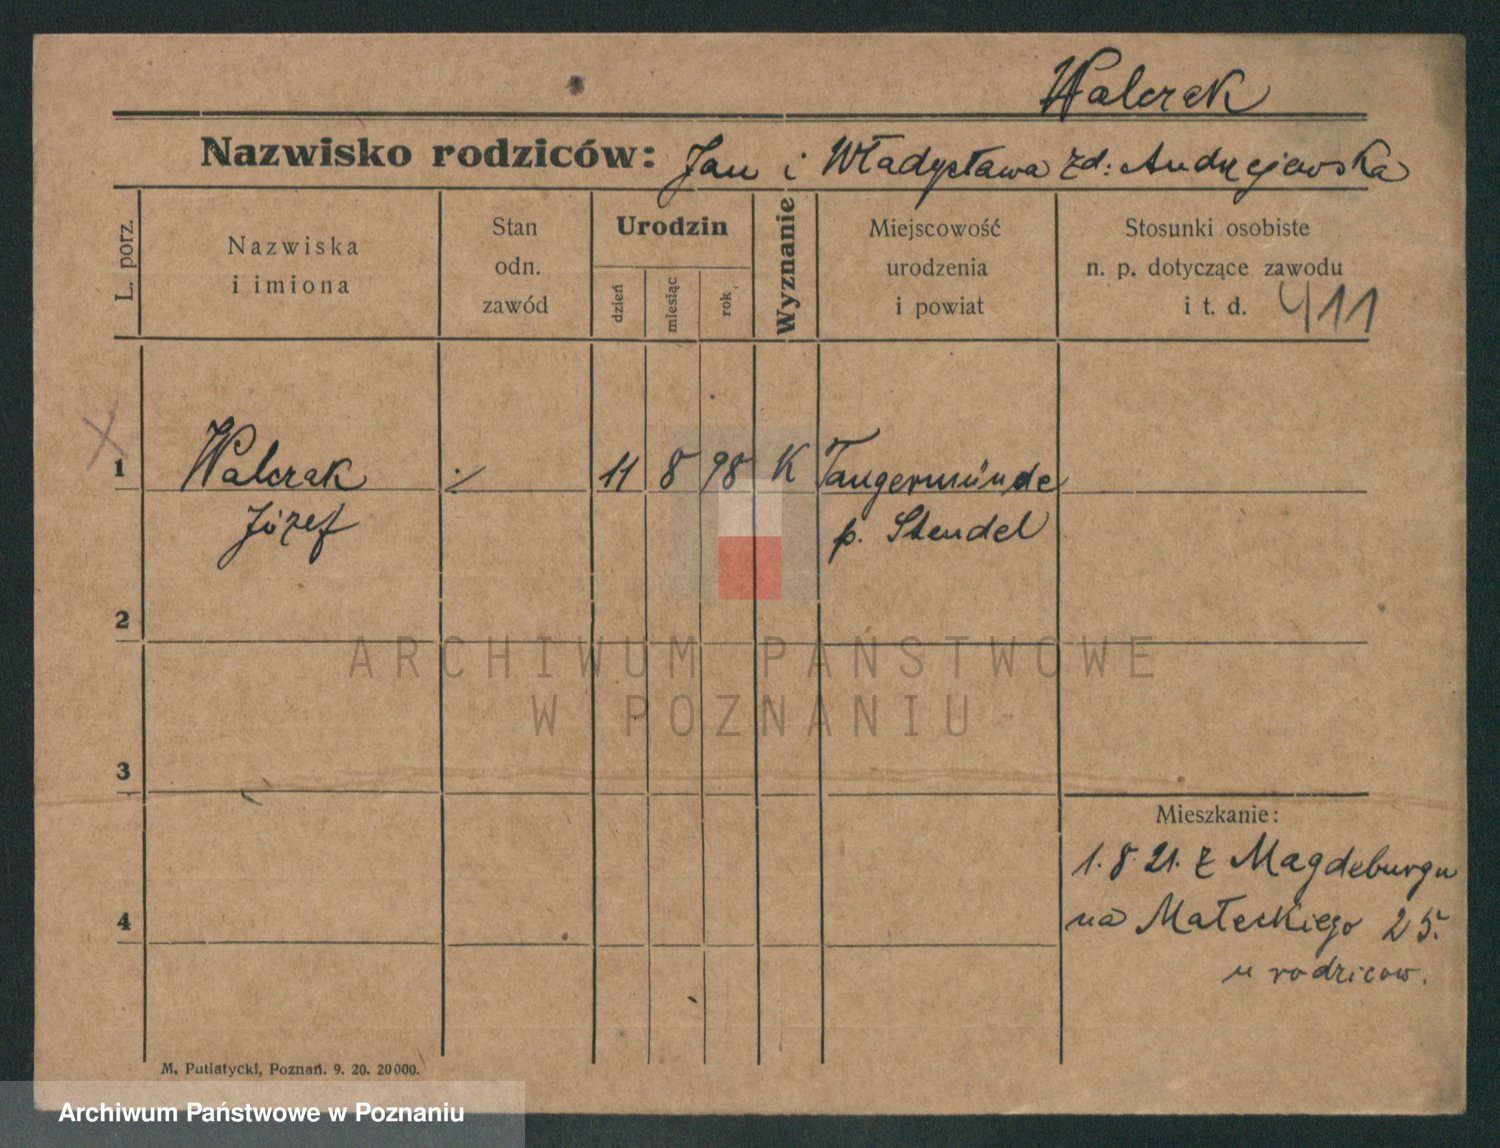 Walczak
Nazwisko rodziców: Jan i Władysława zd: Andrzejewska
L. porz.
Nazwiska
i imiona
Stan
odn.
zawód
Urodzin
dzień
miesiąc
rok
Wyznanie
Miejscowość
urodzenia
i powiat
Stosunki osobiste
n. p. dotyczące zawodu
i t. d. 411
1 Walczak ./ 11 8 98 K Tangermünde
Józef p. Stendel
2
ARCHIWUM PAŃSTWOWE
W POZNANIU
3
Mieszkanie:
1.8.21. z Magdeburgu
4 na Małeckiego 25.
u rodzicow.
M. Putiatycki, Poznań. 9. 20. 20000.
Archiwum Państwowe w Poznaniu